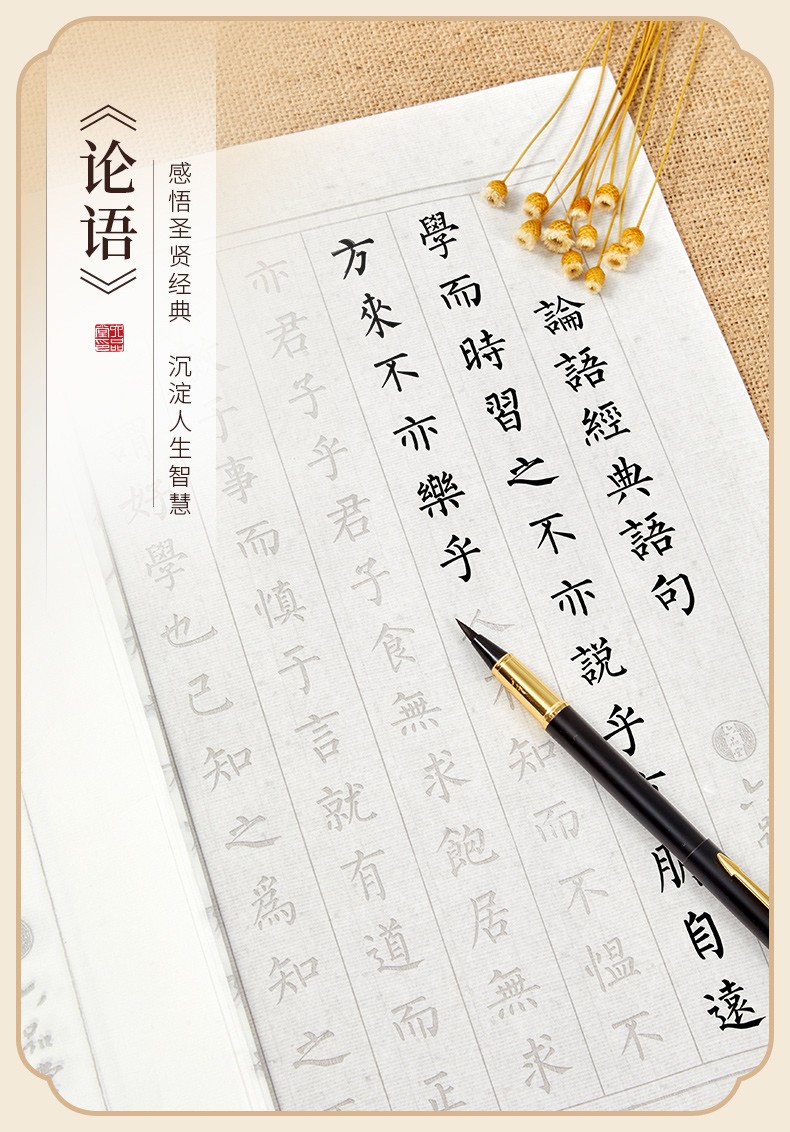 《论语》
感悟圣贤经典 沉淀人生智慧
論語經典語句
學而時習之不亦説乎有朋自遠
方來不亦樂乎人不知而不愠不
亦君子乎君子食無求飽居無求
于事而慎于言就有道而正
好學也已知之爲知之